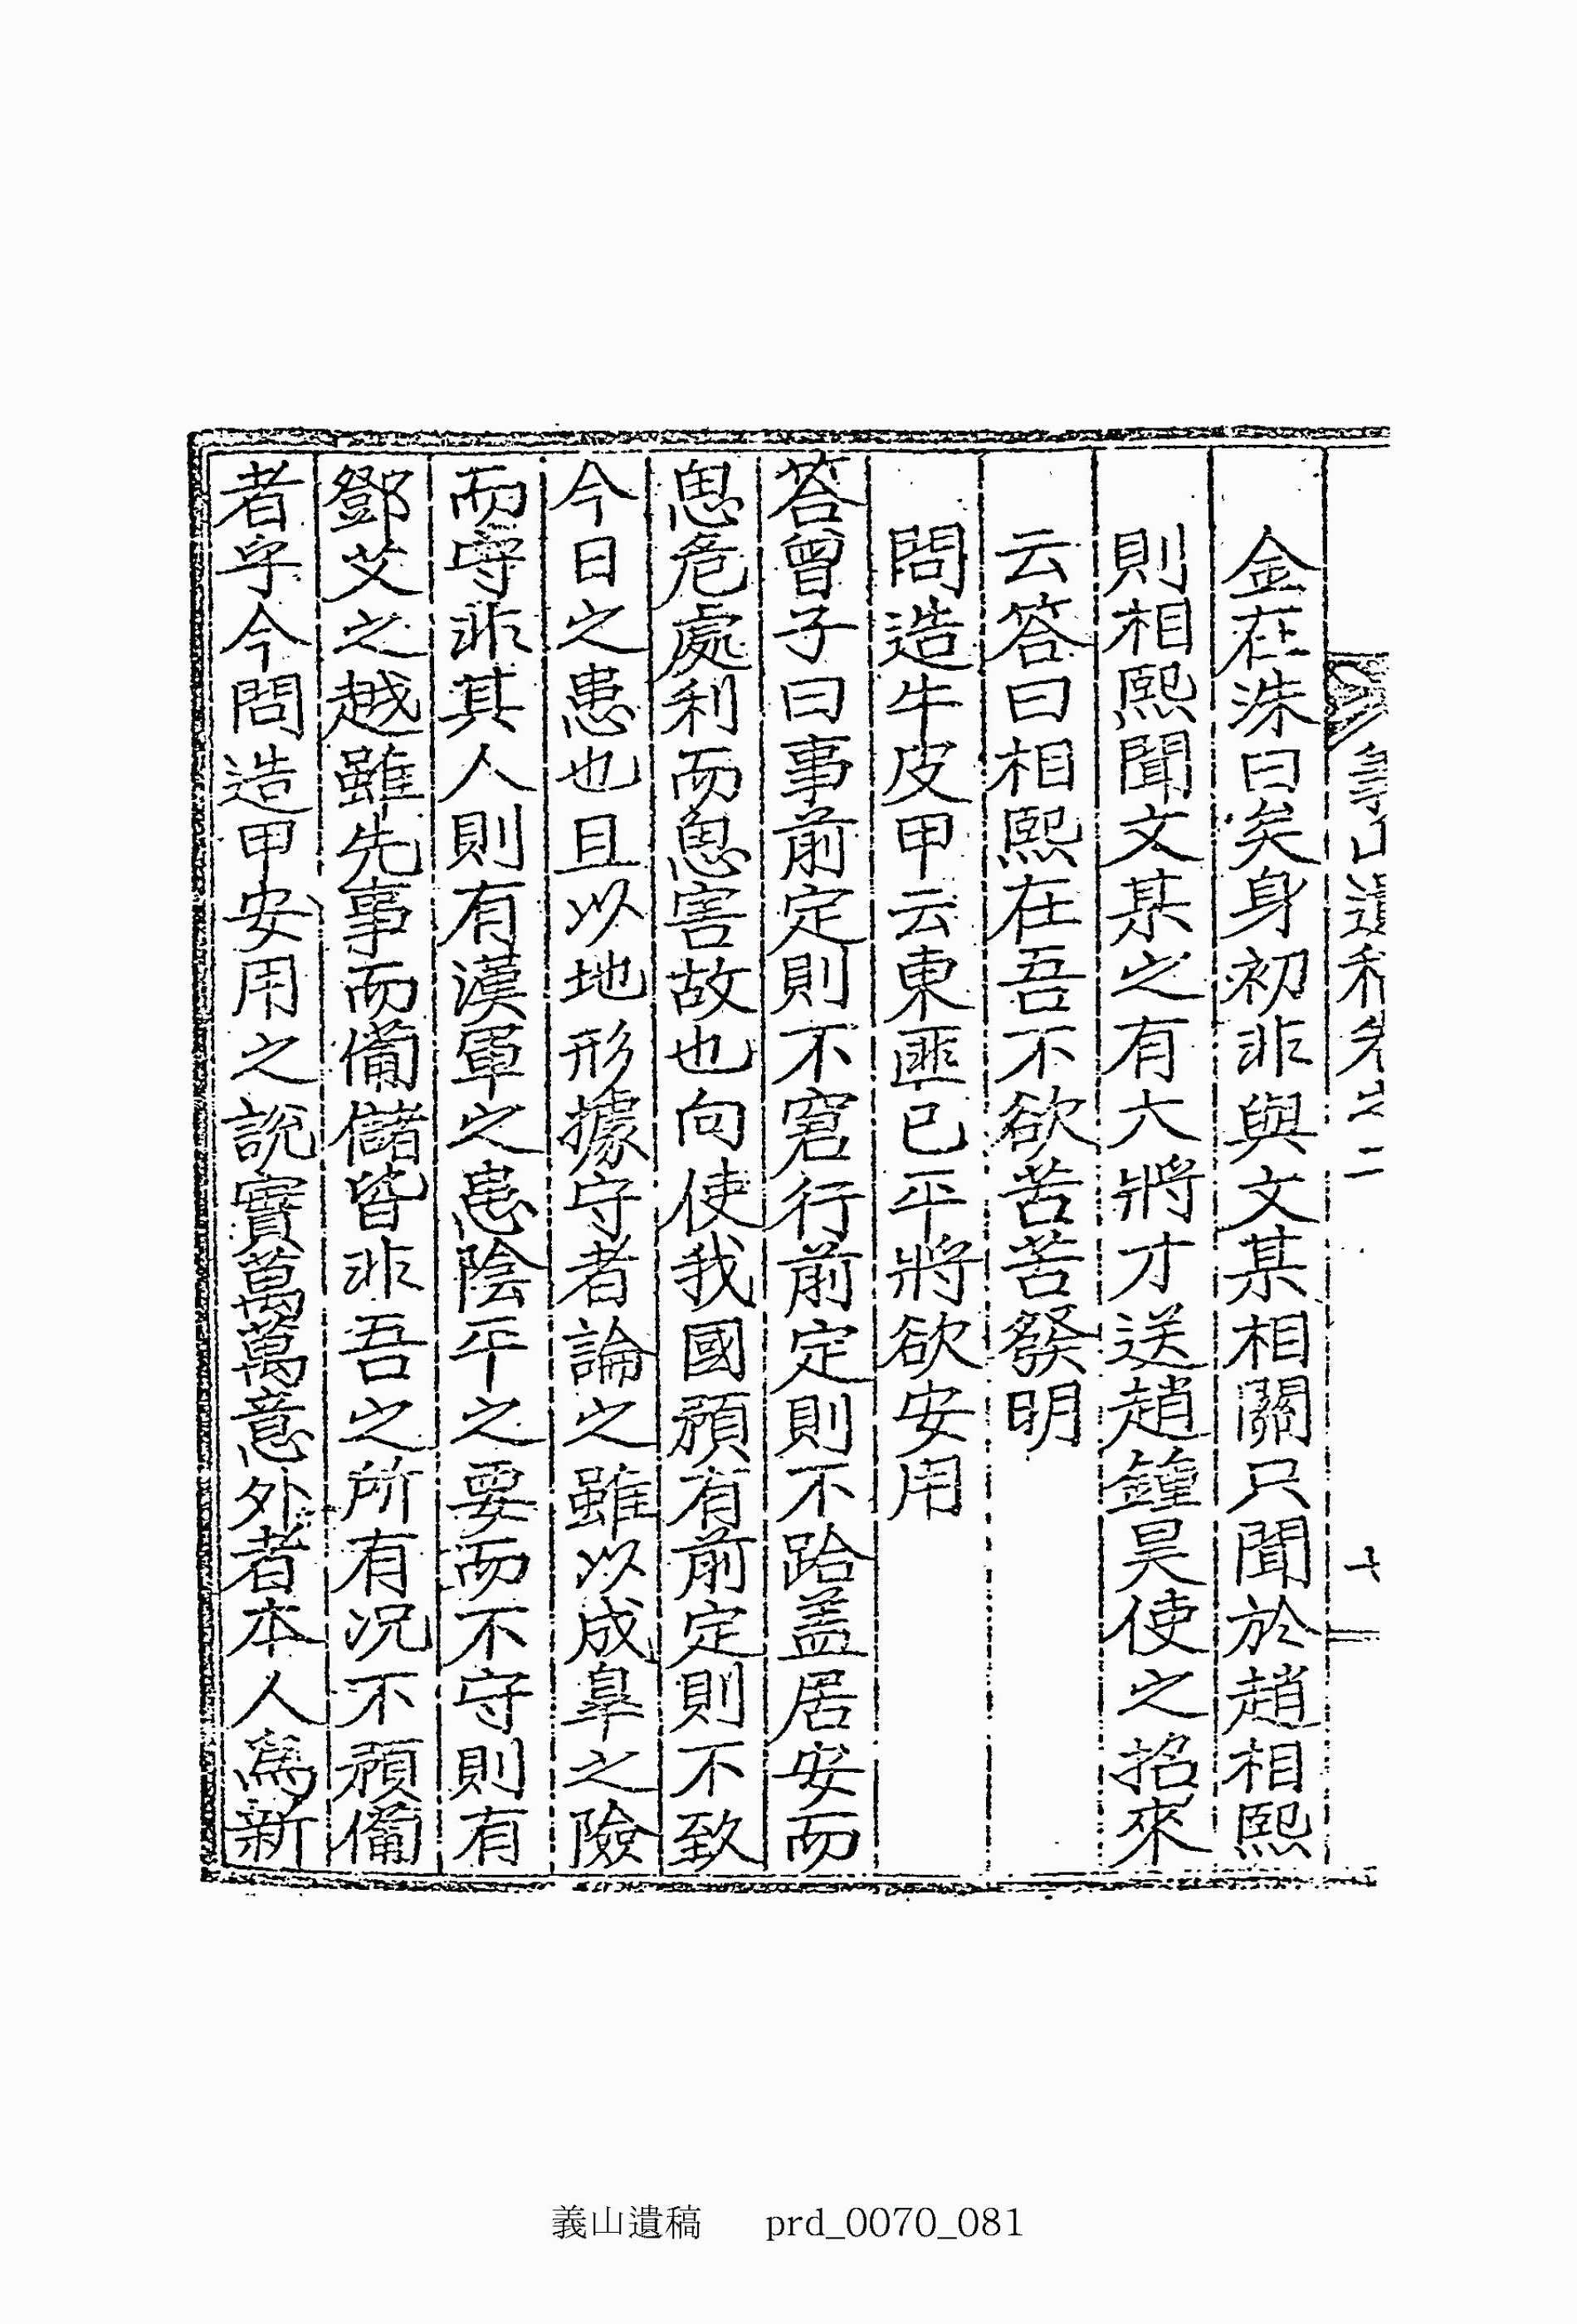 義山遺稿卷之二
十
金在洙曰矣身初非與文某相關只聞於趙相熙
則相熙聞文某之有大將才送趙鐘昊使之招來
云答曰相熙在吾不欲苦苦發明
問造牛皮甲云東匪已平將欲安用
答曾子曰事前定則不窘行前定則不跲盖居安而
思危處利而思害故也向使我國預有前定則不致
今日之患也且以地形據守者論之雖以成皐之險
而守非其人則有漢軍之患陰平之要而不守則有
鄧艾之越雖先事而備儲皆非吾之所有况不預備
者乎今問造甲安用之說實萬萬意外者本人爲新
義山遺稿 prd_0070_081